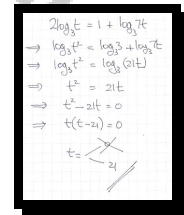 2log₃t = 1 + log₃7t
⇒ log₃t² = log₃3 + log₃7t
⇒ log₃t² = log₃(21t)
⇒ t² = 21t
⇒ t² - 21t = 0
⇒ t(t-21) = 0
t = 0
21